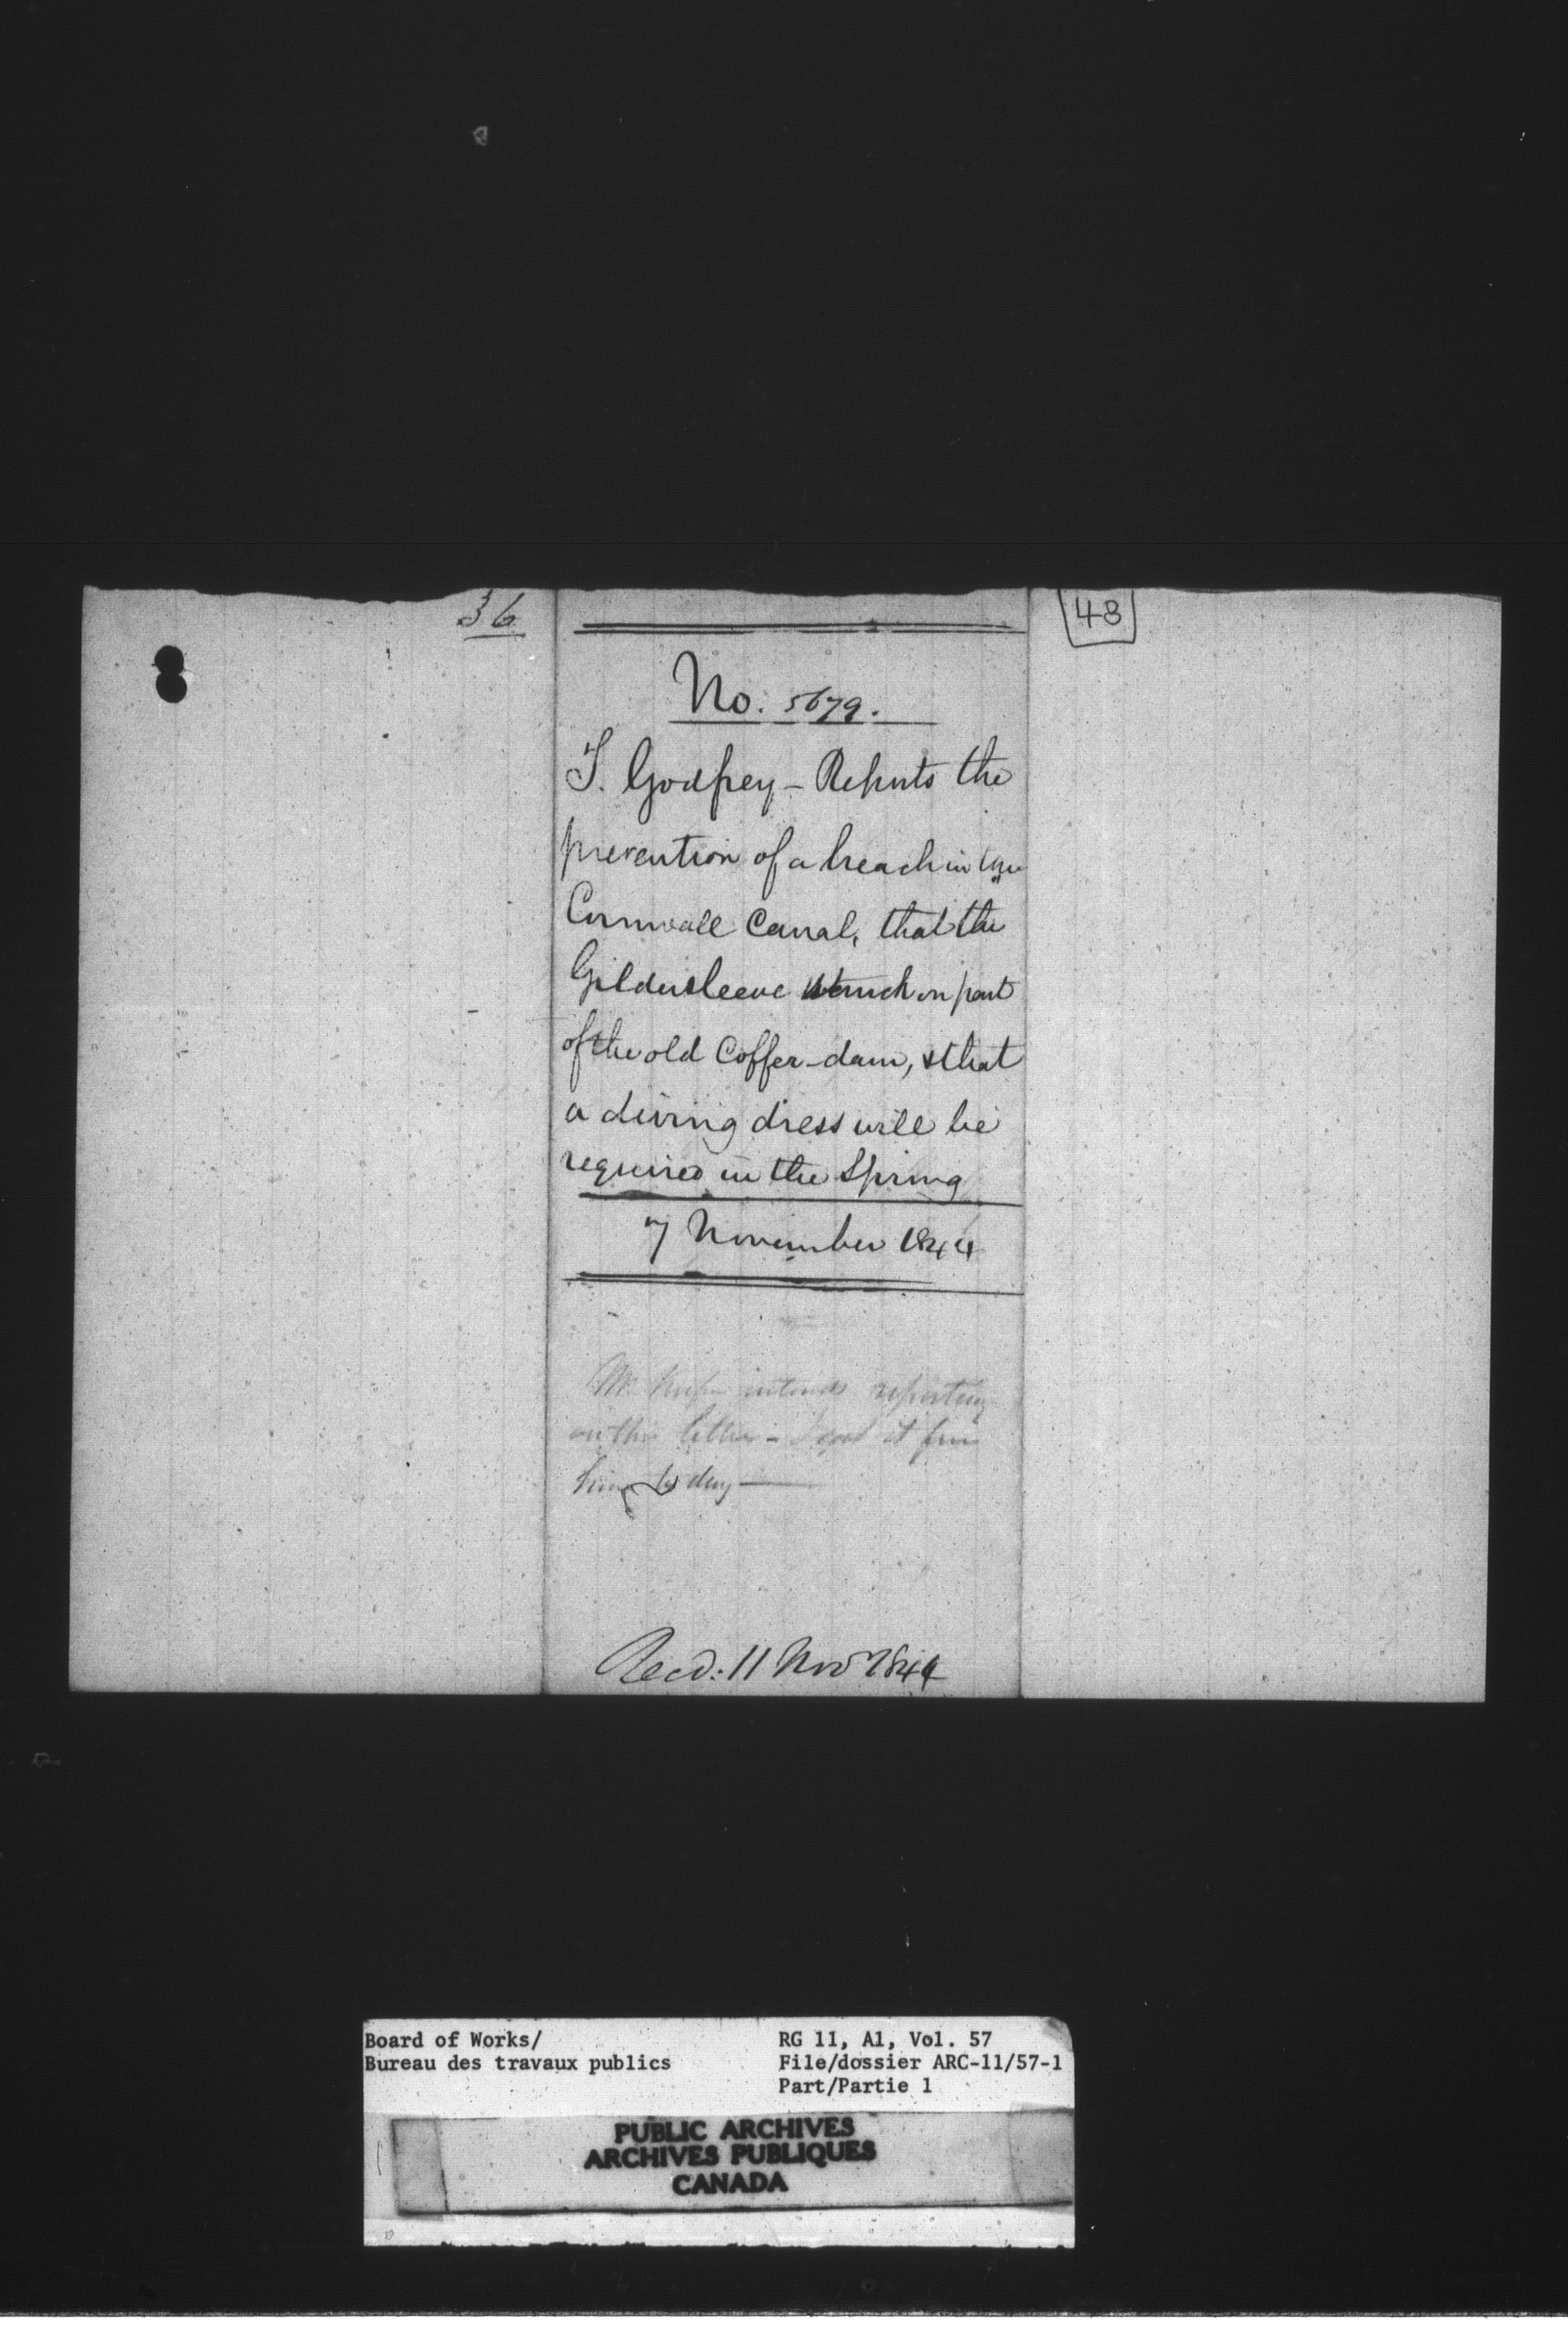 36
48
No. 5679.
T. Godfrey - Reports the
prevention of a breach in the
Cornwall Canal, that the
Gildersleeve struck on part
of the old Coffer-dam, & that
a diving dress will be
required in the Spring
7 November 1844
Mr. intends reporting
on this letter - I got it from
him to day
Recd: 11 Nov 1844
Board of Works/
Bureau des travaux publics
RG 11, A1, Vol. 57
File/dossier ARC-11/57-1
Part/Partie 1
PUBLIC ARCHIVES
ARCHIVES PUBLIQUES
CANADA